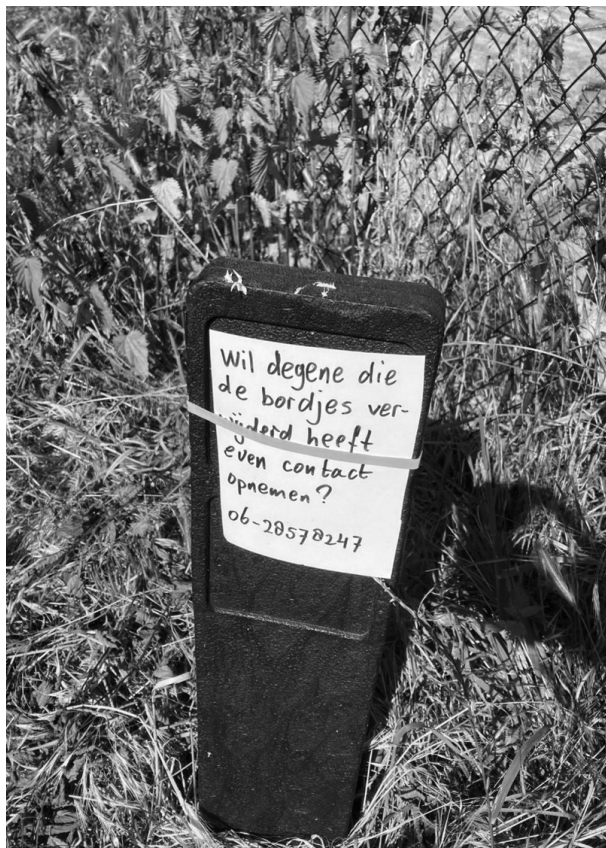 Wil degene die
de bordjes ver-
wijderd heeft
even contact
opnemen?
06-28578247